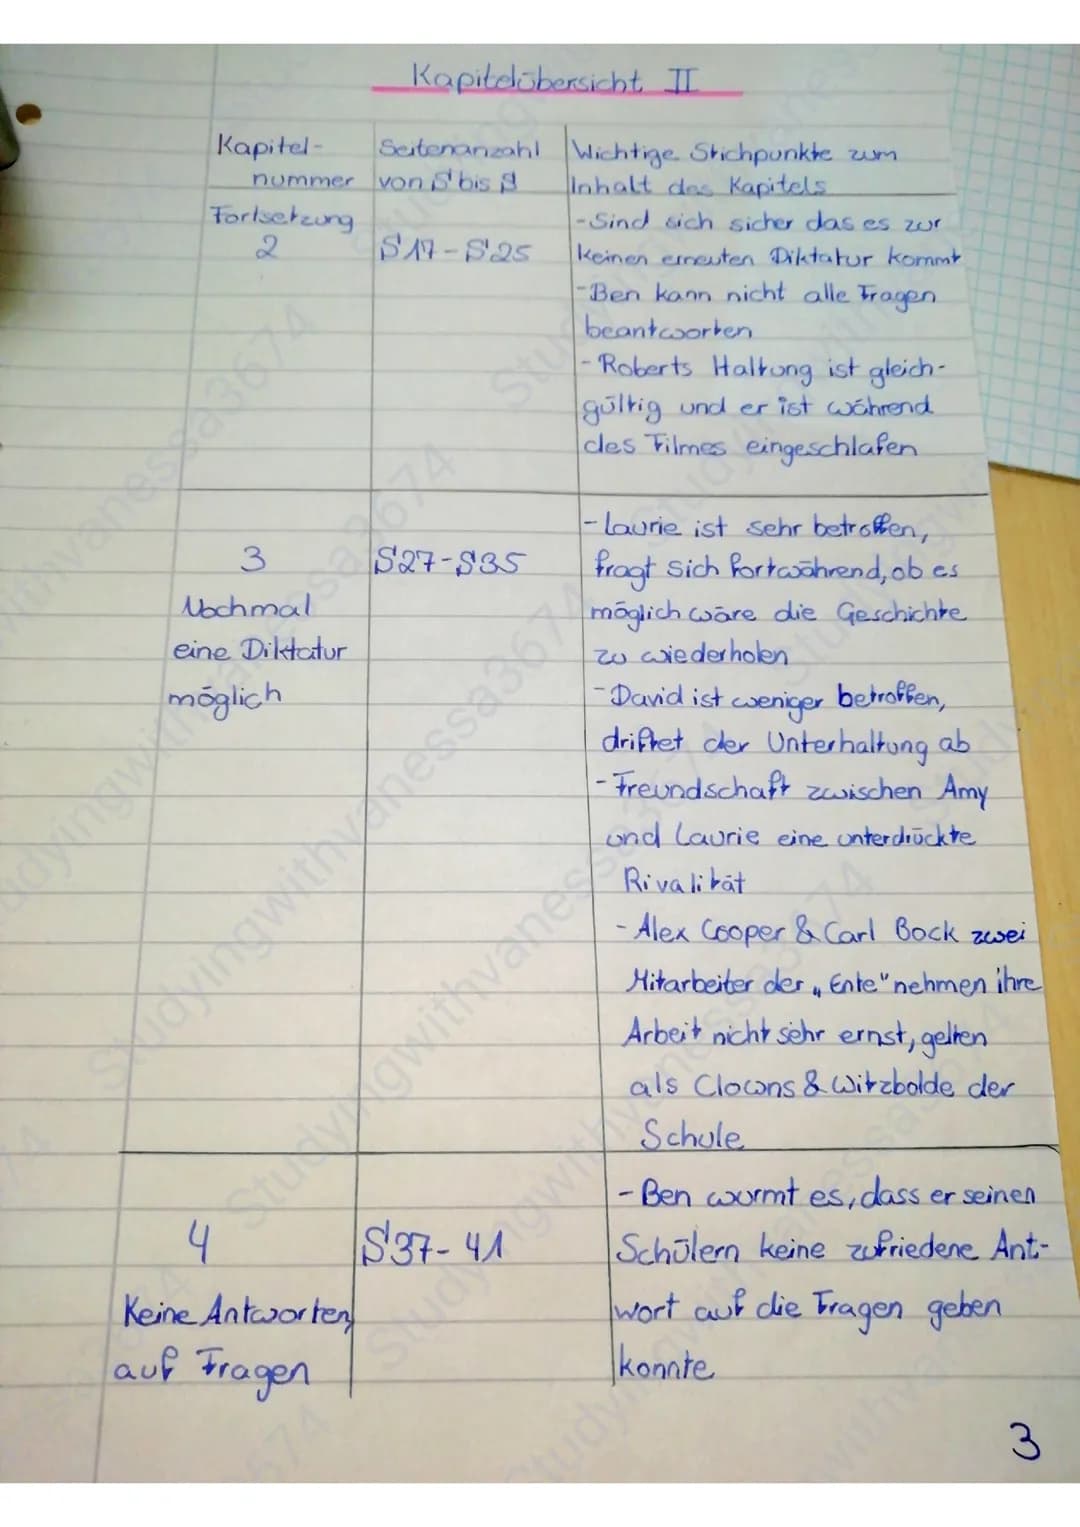 Kapitelübersicht II
Kapitel-
nummer
Seitenanzahl
von S bis S
Wichtige Stichpunkte zum
Inhalt des Kapitels
Fortsetzung
2
S17-S25
-Sind sich sicher das es zur
keinen erneuten Diktatur kommt
-Ben kann nicht alle Fragen
beantworten
-Roberts Haltung ist gleich-
gültig und er ist während
des Filmes eingeschlafen
3
Nochmal
eine Diktatur
möglich
S27-S35
-Laurie ist sehr betroffen,
fragt sich fortwährend, ob es
möglich wäre die Geschichte
zu wiederholen
-David ist weniger betroffen,
driftet der Unterhaltung ab
-Freundschaft zwischen Amy
und Laurie eine unterdrückte
Rivalität
-Alex Cooper & Carl Bock zwei
Mitarbeiter der „Ente" nehmen ihre
Arbeit nicht sehr ernst, gelten
als Clowns & Witzbolde der
Schule
4
Keine Antworten
auf Fragen
S37-41
-Ben wurmt es, dass er seinen
Schülern keine zufriedene Ant-
wort auf die Fragen geben
konnte
3
Studyingwithvanessa3674